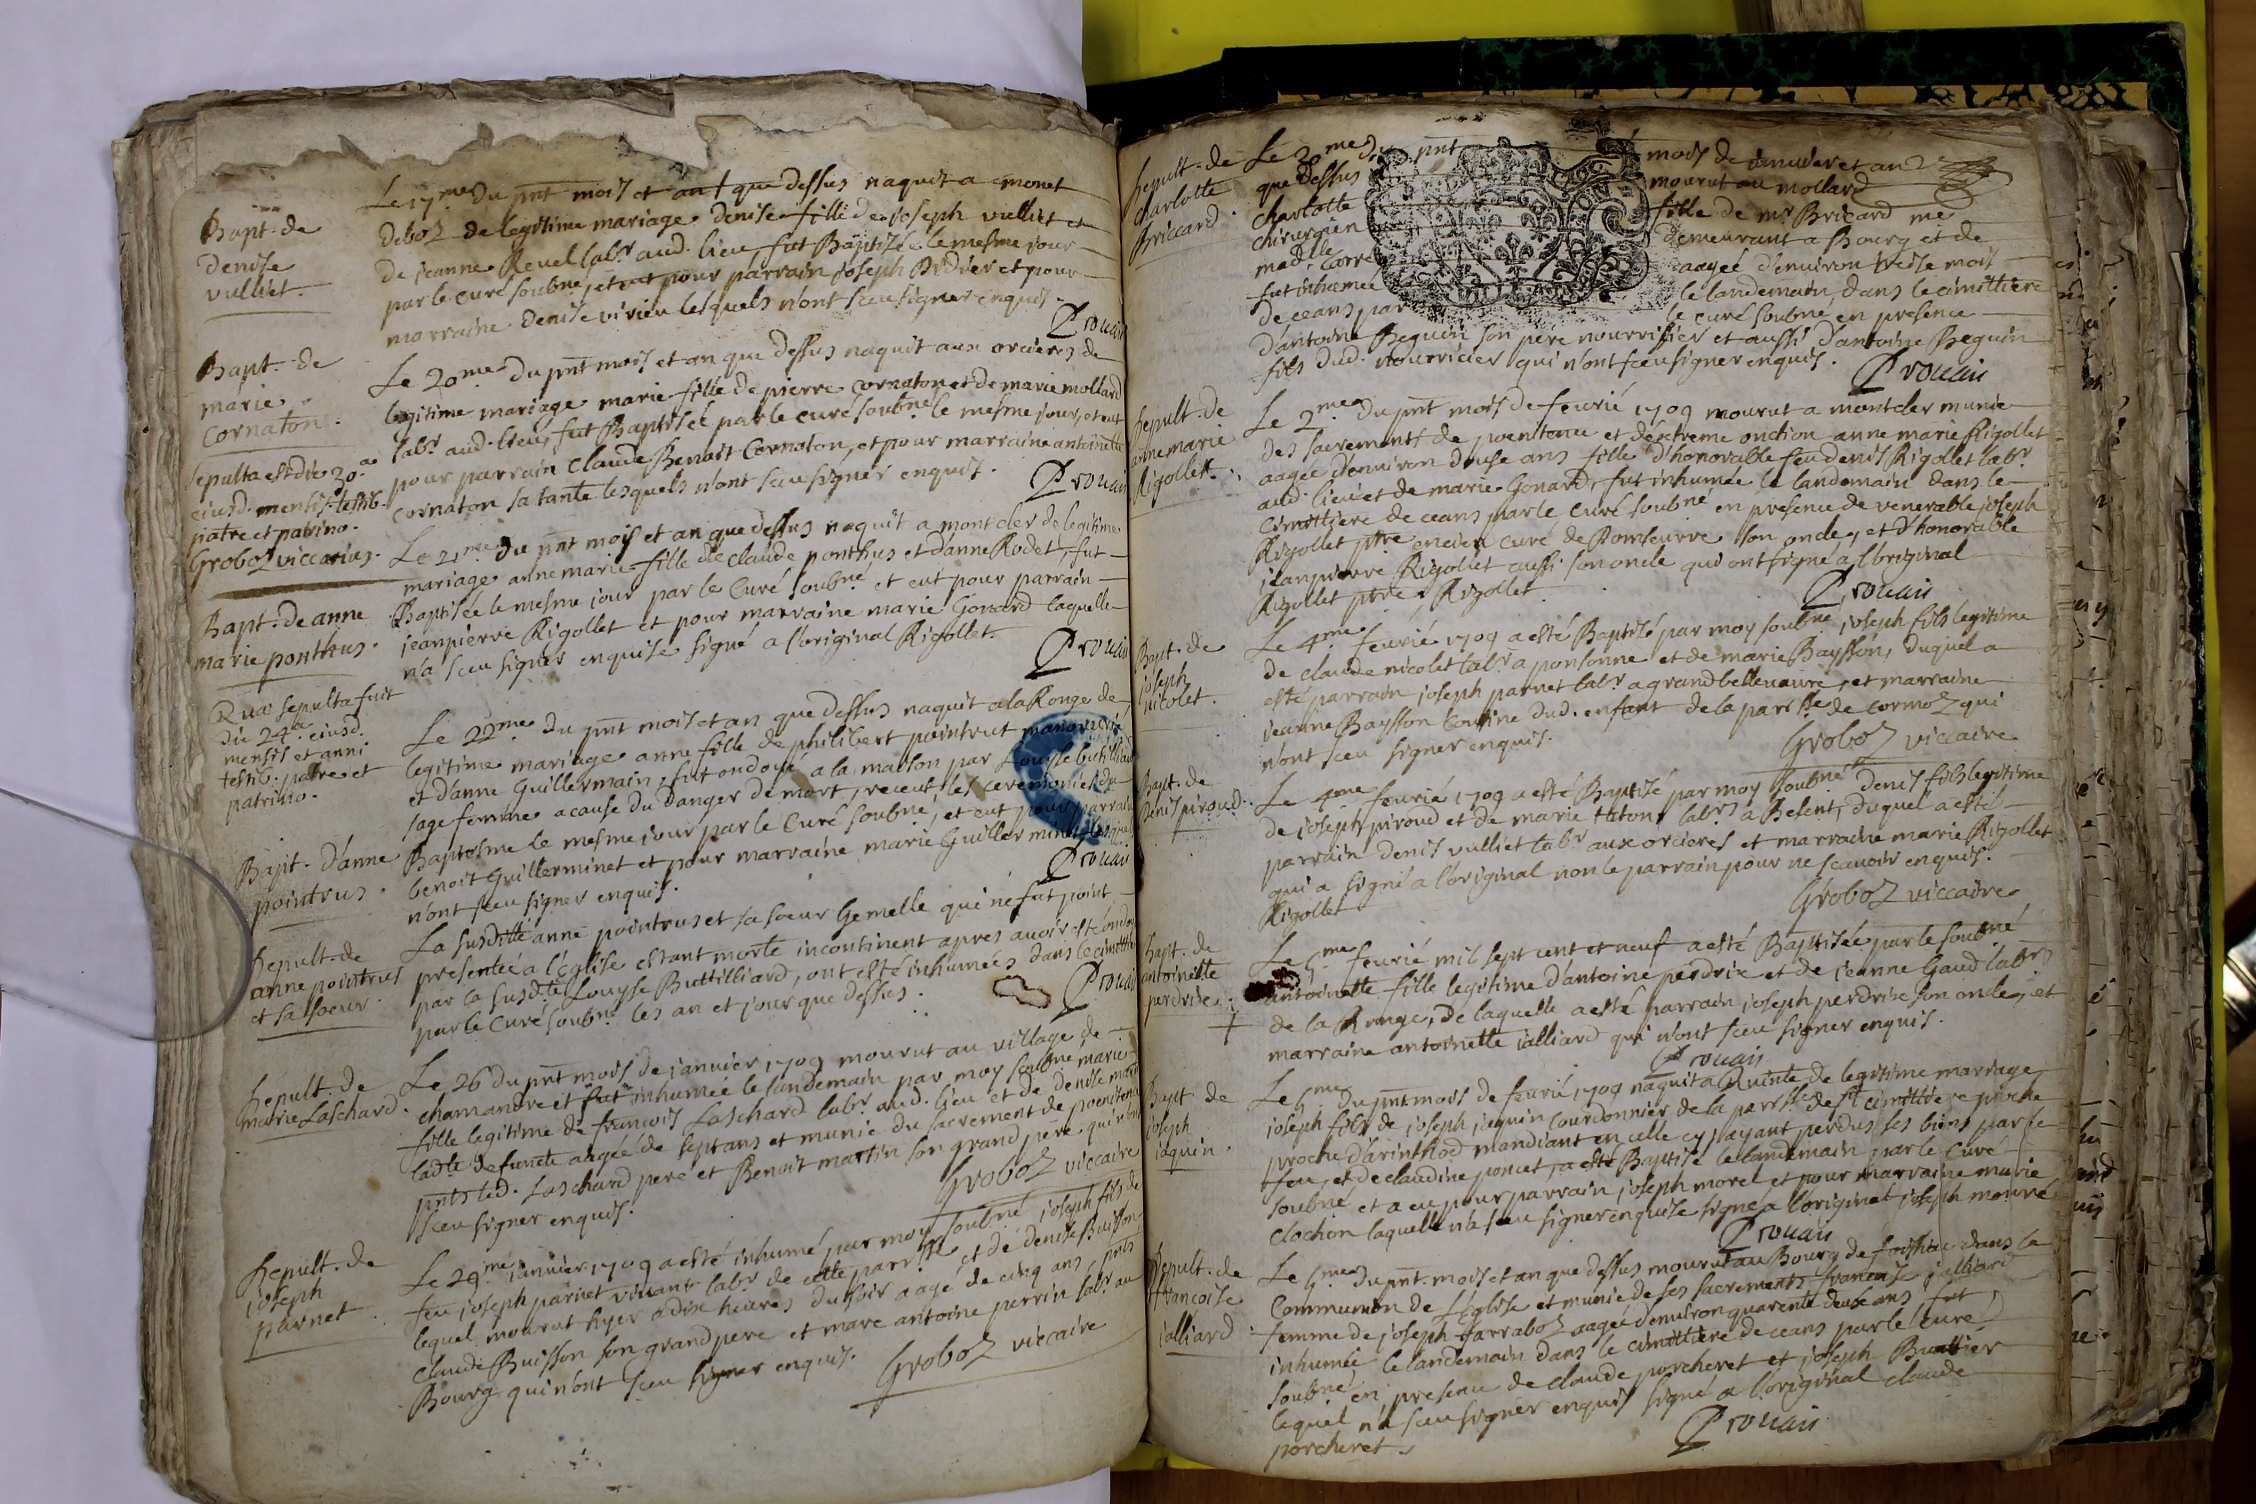 Bapt. de
denise
vulliet.
Le 17me du pnt mois et an que dessus naquit a monet
deboz de legitime mariage denise fille de joseph vulliet et
de jeanne Revel labr aud. lieu fut Baptisée le mesme jour
par le curé soubné, et eut pour parrain joseph Bidier et pour
marraine denise virieu lesquels n'ont sceu signer enquis.
Prouain
Bapt. de
marie
Cornaton.
Le 20me du pnt mois et an que dessus naquit aux orcieres de
legitime mariage marie fille de pierre Cornaton et de marie mollard
labr aud. lieu, fut Baptisée par le curé soubné le mesme jour, et eut
pour parrain Claude Benoit Cornaton, et pour marraine antoinette
Cornaton sa tante lesquels n'ont sceu signer enquis.
Prouain
sepulta est die 30a
eiusd. mensis testib.
patre et patrino.
Groboz viccarius.
Bapt. de anne
marie ponthus.
Le 21me du pnt mois et an que dessus naquit a montcler de legitime
mariage anne marie fille de claude ponthus et d'anne Rodet, fut
Baptisée le mesme jour par le Curé soubné et eut pour parrain
jeanpierre Rigollet et pour marraine marie Gonard laquelle
n'a sceu signer enquise signé a l'original Rigollet.
Prouain
Quae sepulta fuit
die 24a eiusd.
mensis et anni
testib. patre et
patrino.
Bapt. d'anne
pointrus.
Le 22me du pnt mois et an que dessus naquit a la Ronge de
legitime mariage anne fille de philibert pointrut manouvrier
et d'anne Guillermain, fut ondoyé a la maison par Louyse butilliard
sage femme a cause du danger de mort, receut les ceremonies du
Baptesme le mesme jour par le Curé soubné, et eut pour parrain
benoit Guillerminet et pour marraine marie Guillerminet lesquels
n'ont sceu signer enquis.
Prouain
Sepult. de
anne pointrus
et sa soeur.
La susditte anne pointrus et sa soeur Gemelle qui ne fut point
presentée a l'Eglise estant morte incontinent apres avoir esté ondoyée
par la susdte Louyse Buttilliard, ont esté inhumées dans le cimettiere
par le Curé soubné les an et jour que dessus.
Prouain
Sepult. de
marie Laschard.
Le 26 du pnt mois de janvier 1709 mourut au village de
chamandre et fut inhumée le landemain par moy soubné marie
fille legitime de francois Laschard labr aud. lieu et de denise martin
ladte defuncte aagée de sept ans et munie du sacrement de poenitence
pnts led. Laschard pere et Benoit martin son grand pere qui n'ont
sceu signer enquis.
Groboz viccaire
Sepult. de
joseph
parnet
Le 29me janvier 1709 a esté inhumé par moy soubné joseph fils de
feu joseph parnet vivant labr de cette parrsse et de denise Buisson
lequel mourut hyer a dix heures du soir aagé de cinq ans, pnts
Claude Buisson son grand pere et marc antoine perrin labr au
Bourg qui n'ont sceu signer enquis.
Groboz viccaire
Sepult. de
charlotte
Briccard.
Le 2me du pnt mois de janvier et an
que dessus mourut au mollard
charlotte fille de mr Bricard me
chirurgien demeurant a Bourg et de
madlle Corre aagée d'environ treise mois
fut inhumée le landemain, dans le cimettiere
de ceans par le curé soubné en presence
d'antoine Beguin son pere nourricier et aussi d'antoine Beguin
fils dud. nourricier qui n'ont sceu signer enquis.
Prouain
Sepult. de
anne marie
Rigollet.
Le 2me du pnt mois de feurié 1709 mourut a montcler munie
des sacrements de poenitence et d'extreme onction anne marie Rigollet
aagée d'environ douse ans fille d'honorable feu denis Rigollet labr
aud. lieu et de marie Gonard, fut inhumée le landemain dans le
cimettiere de ceans par le curé soubné en presence de venerable joseph
Rigollet ptre encien curé de Romseurre son oncle, et d'honorable
jeanpierre Rigollet aussi son oncle qui ont signé a l'original
Rigollet ptre, Rigollet.
Prouain
Bapt. de
joseph
nicolet.
Le 4me feurié 1709 a esté Baptisé par moy soubné joseph fils legitime
de claude nicolet labr a ponsonne et de marie Baysson, duquel a
esté parrain joseph parnet labr a grand bellevavre, et marraine
jeanne Baysson cousine dud. enfant de la parrsse de cormoz qui
n'ont sceu signer enquis.
Groboz viccaire
Bapt. de
denis piroud.
Le 4me feurié 1709 a esté Baptisé par moy soubné denis fils legitime
de joseph piroud et de marie tuton labrs a Besent, duquel a esté
parrain denis vulliet labr aux orcieres et marraine marie Rigollet
qui a signé a l'original non le parrain pour ne scauoir enquis.
Rigollet
Groboz viccaire
Bapt. de
antoinette
perdrix.
Le 5me feurié mil sept cent et neuf a esté Baptisée par le soubné
antoinette fille legitime d'antoine perdrix et de jeanne Gaud labrs
de la Ronge, de laquelle a esté parrain joseph perdrix son oncle, et
marraine antoinette jalliard qui n'ont sceu signer enquis.
Prouain
Bapt. de
joseph
jaquin.
Le 5me du pnt mois de feurié 1709 naquit a Quinte de legitime mariage
joseph fils de joseph jaquin Courdonnier de la parrsse de st cimittiere proche
proche d'arinthod mandiant en celle cy, ayant perdus ses biens par le
feu, et de claudine poncet, a esté Baptisé le landemain par le Curé
soubné et a eu pour parrain joseph morel et pour marraine marie
clochon laquelle n'a sceu signer enquise signé a l'original joseph mourel
Prouain
Sepult. de
francoise
jalliard
Le 5me du pnt mois et an que dessus mourut au Bourg de foissiac dans la
Communion de l'Eglise et munie de ses sacrements francoise jalliard
femme de joseph farraboz aagée d'environ quarente deux ans fut
inhumée le landemain dans le cimettiere de ceans par le curé
soubné en presence de claude porcheret et joseph Buattier
lequel n'a sceu signer enquis signé a l'original claude
porcheret.
Prouain